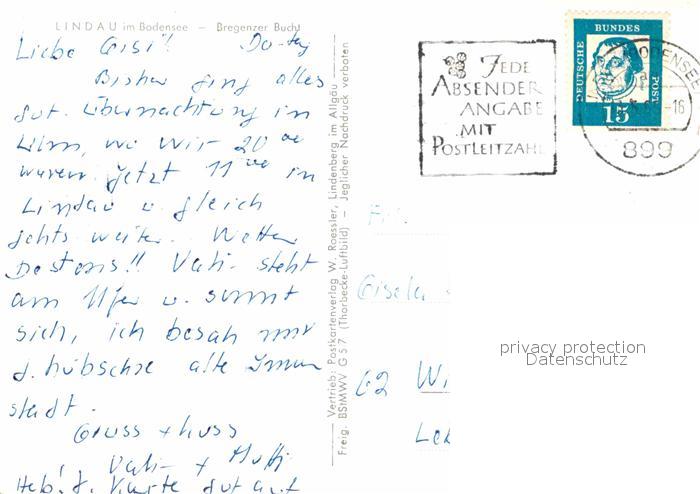 LINDAU im Bodensee – Bregenzer Bucht
Liebe Gisi! Do-tag
Bisher ging alles
gut. Übernachtung in
Ulm, wo wir 20 00
waren. Jetzt 11 00 in
Lindau u. gleich
gehts weiter. Wetter
Bestens!! Vati steht
am Ufer u. sonnt
sich, ich besah mir
d. hübsche alte Innen
stadt.
Gruss + Kuss
Vati + Mutti
Heb! d. Karte gut auf
Vertrieb: Postkartenverlag W. Roessler, Lindenberg im Allgäu
Freig. BStMWV G 57 (Thorbecke-Luftbild) – Jeglicher Nachdruck verboten
JEDE
ABSENDER
ANGABE
MIT
POSTLEITZAHL
DEUTSCHE
BUNDES
POST
15
BODENSEE
-16
899
Gisela
62 Wi
privacy protection
Datenschutz